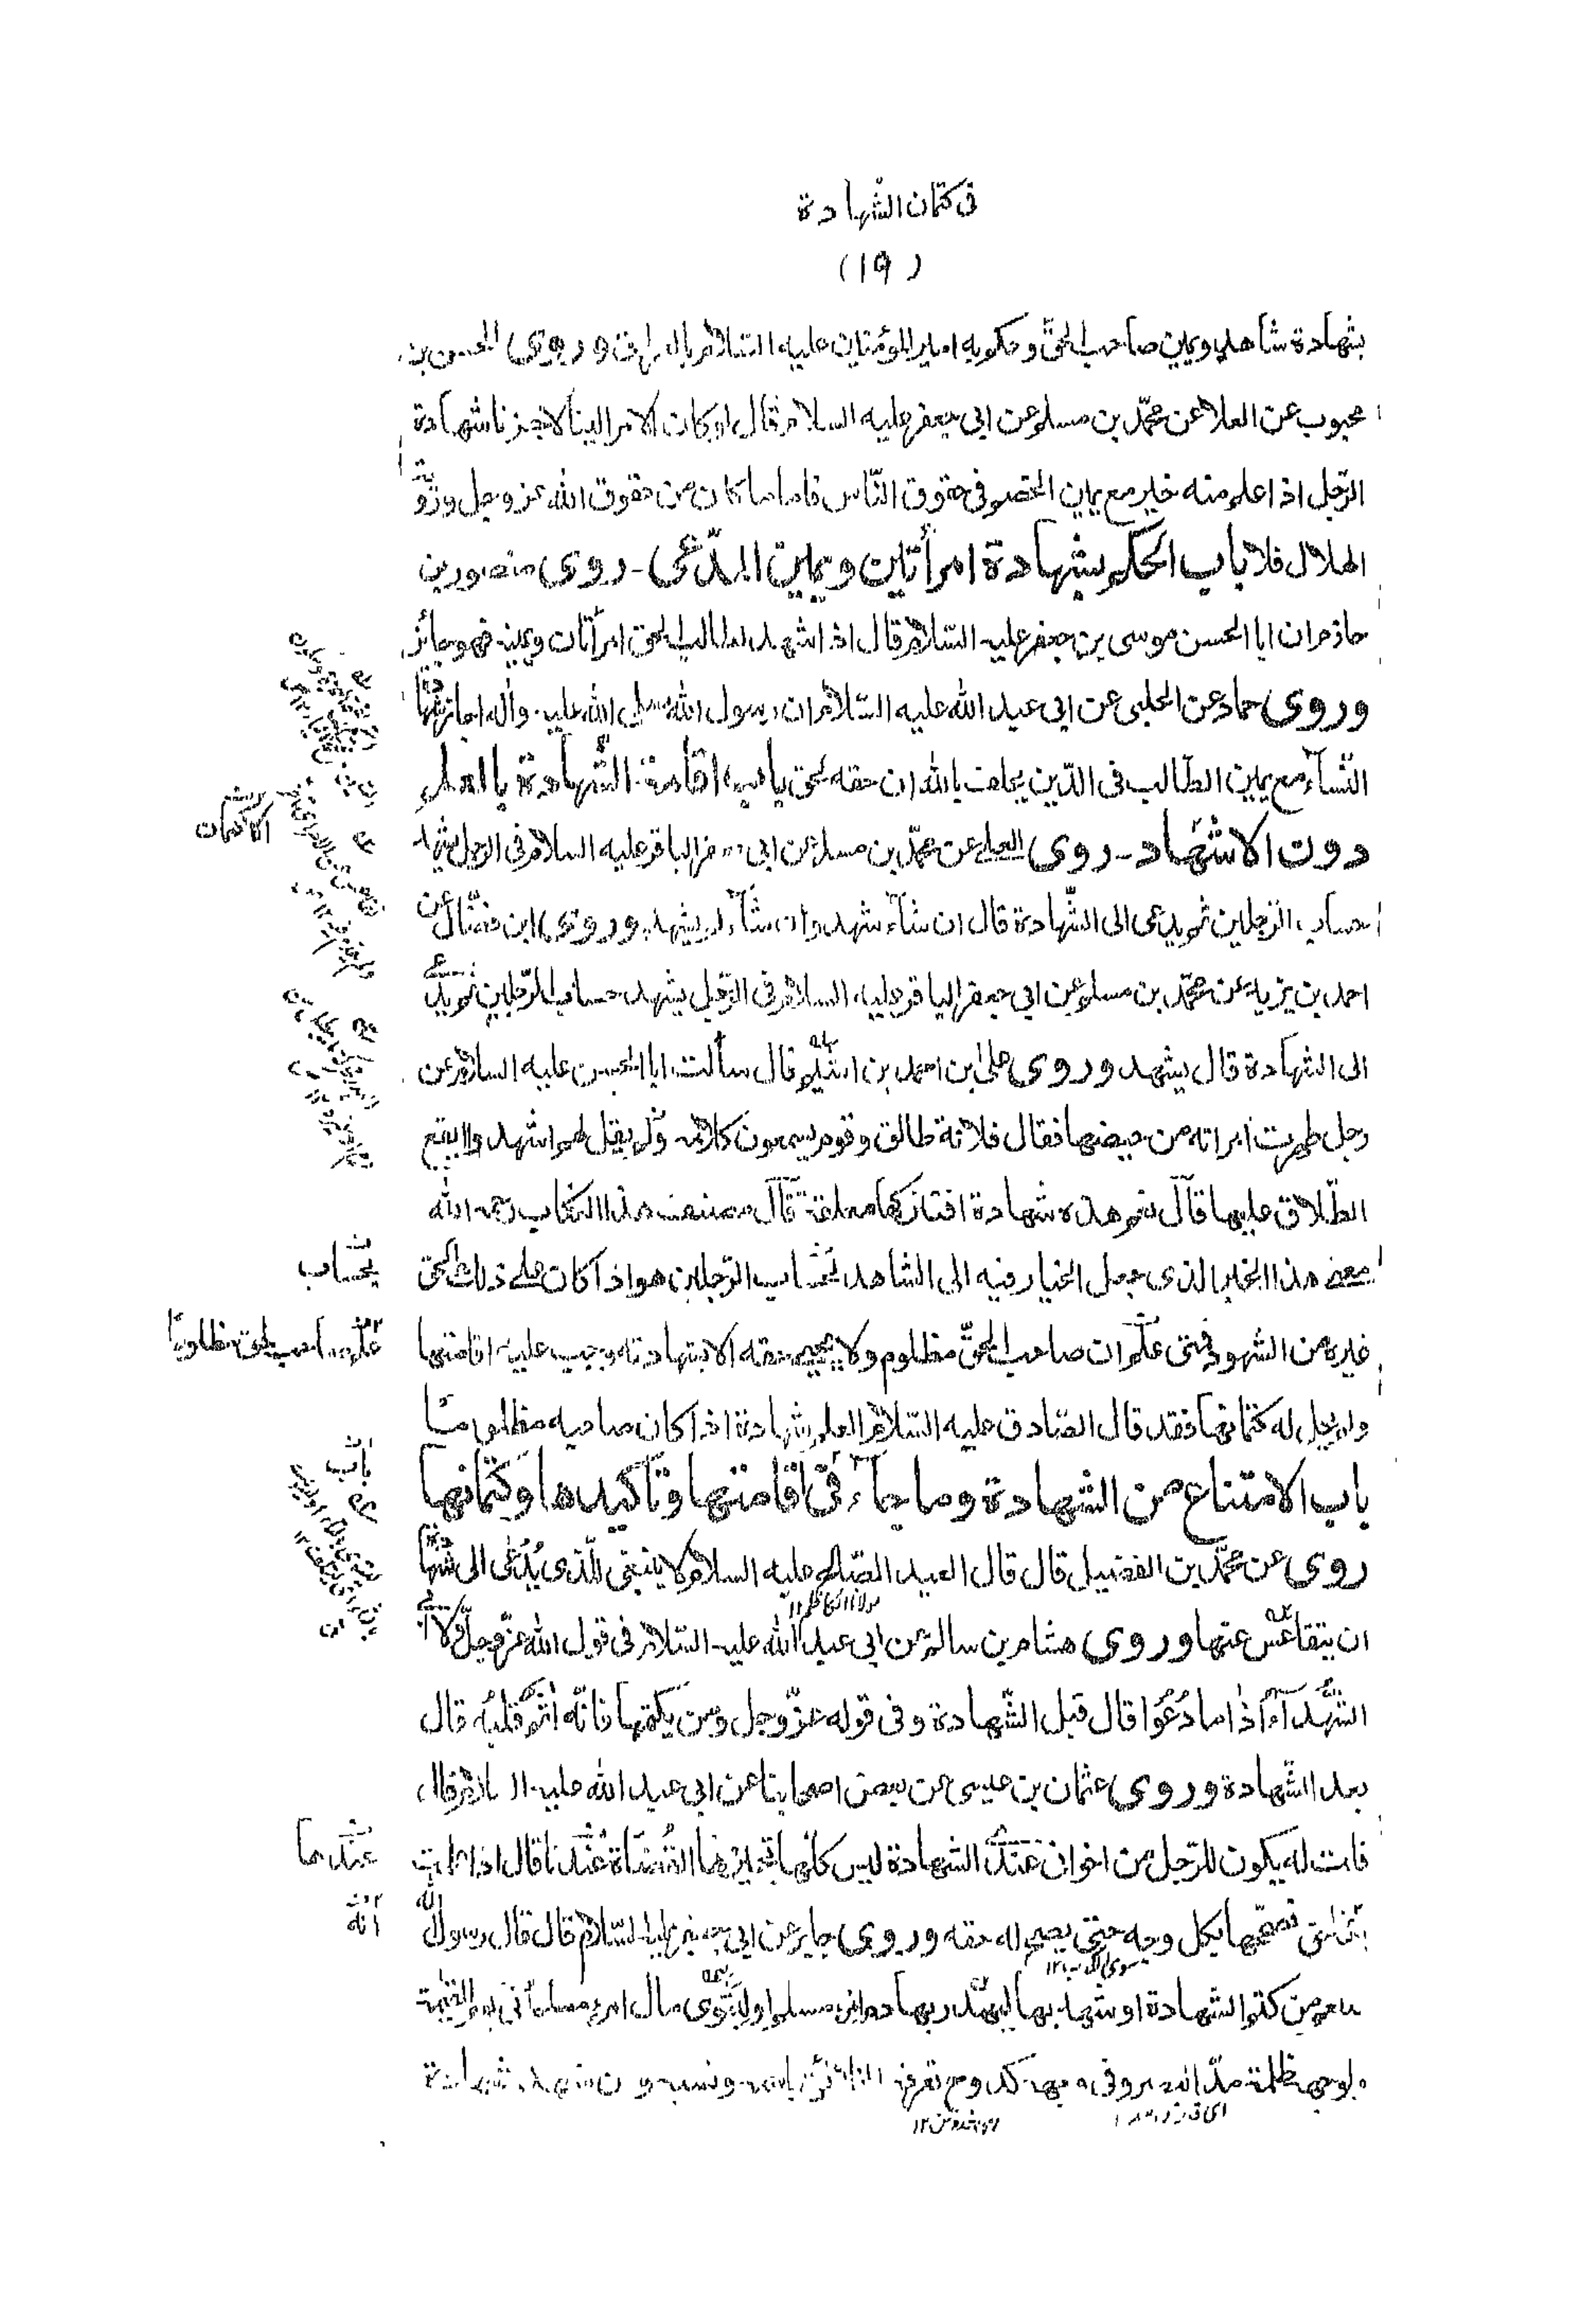 فی كتمان الشهادة
(١٩)
بشهادة شاهد ويمين صاحب الحقّ وحكم به امير المؤمنين عليه السلام بالعراق وروى الحسن بن
محبوب عن العلا عن محمّد بن مسلم عن ابى جعفر عليه السلام قال لو كان الامر الينا لاجزنا شهادة
الرّجل اذا علم منه خير مع يمين الخصم فى حقوق النّاس فاما ما كان من حقوق الله عز وجل ورؤية
الهلال فلا باب الحكم بشهادة امرأتين ويمين المدّعى - روى منصور بن
حازم ان ابا الحسن موسى بن جعفر عليه السّلام قال اذا شهد لطالب الحق امرأتان ويمينه فهو جائز
وروى حماد عن الحلبى عن ابى عبد الله عليه السّلام ان رسول الله صلى الله عليه وآله اجاز شهادة
النّسآء مع يمين الطّالب فى الدّين يحلف بالله ان حقه لحق باب اقامة الشّهادة بالعلم
دون الاشهاد - روى العلا عن محمّد بن مسلم عن ابى جعفر الباقر عليه السلام فى الرجل يشهد
حساب الرّجلين ثم يدعى الى الشّهادة قال ان شآء شهد وان شآء لم يشهد وروى ابن فضّال عن
احمد بن يزيد عن محمّد بن مسلم عن ابى جعفر الباقر عليه السلام فى الرّجل يشهد حساب الرّجلين ثم يدعى
الى الشهادة قال يشهد وروى على بن احمد بن اشيم قال سألت ابا الحسن عليه السلام عن
رجل طهرت امراته من حيضها فقال فلانة طالق وقوم يسمعون كلامه ولم يقل لهم اشهدوا ايقع
الطّلاق عليها قال نعم هذه شهادة افتتركها معلقة قال مصنف هذا الكتاب رحمه الله
معنى هذا الخبر الذى جعل الخيار فيه الى الشاهد بحساب الرّجلين هو اذا كان على ذلك الحق
غيره من الشهود فمتى علم ان صاحب الحقّ مظلوم ولا يحيى حقه الا بشهادته وجب عليه اقامتها
ولم يحل له كتمانها فقد قال الصّادق عليه السّلام العلم شهادة اذا كان صاحبه مظلوما
باب الامتناع من الشهادة وما جآء فى اقامتها وتاكيدها وكتمانها
روى عن محمّد بن الفضيل قال قال العبد الصّالح عليه السلام لا ينبغى للّذى يُدْعٰى الى شهادة
ان يتقاعس عنها وروى هشام بن سالم عن ابى عبد الله عليه السّلام فى قول الله عزّ وجلّ ولا يأبى
الشُّهَدَآءُ اِذٰا ما دُعُوْا قال قبل الشّهادة وفى قوله عزّ وجل ومن يكتمها فانّه اٰثم قلبُه قال
بعد الشّهادة وروى عثمان بن عيسى عن بعض اصحابنا عن ابى عبد الله عليه السلام قال
قلت له يكون للرّجل من اخوانى عندى الشهادة ليس كلّها تجيزها القُضاة عندنا قال اذا علمت
انها حق فصححها بكل وجه حتى يصح له حقه وروى جابر عن ابى جعفر عليه السّلام قال قال رسول الله
من كتم الشهادة او شهد بها ليهدر بها دم امرئ مسلم او ليتوى مال امرء مسلم أتى يوم القيمة
ولوجهه ظلمة مدّ البصر وفى وجهه كدوح تعرفه الخلائق باسمه ونسبه ومن شهد شهادة
بحساب
عندها
انه
باب